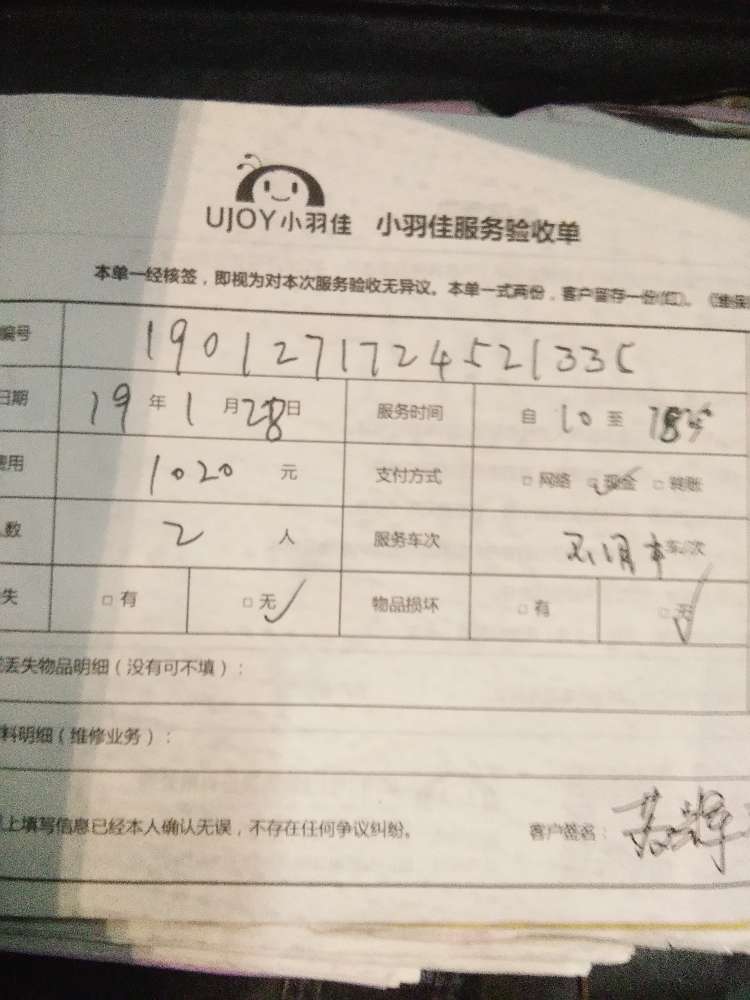 UJOY小羽佳 小羽佳服务验收单
本单一经核签，即视为对本次服务验收无异议。本单一式两份，客户留存一份(红)。
编号 190127172452133
日期 19 年 1 月 28 日 服务时间 自 10 至
费用 1020 元 支付方式 □ 网络 □ 现金 ✓ □ 转账
人数 2 人 服务车次 车/次
失 □ 有 □ 无 ✓ 物品损坏 □ 有 □ 无 ✓
丢失物品明细（没有可不填）：
料明细（维修业务）：
上填写信息已经本人确认无误，不存在任何争议纠纷。 客户签名：